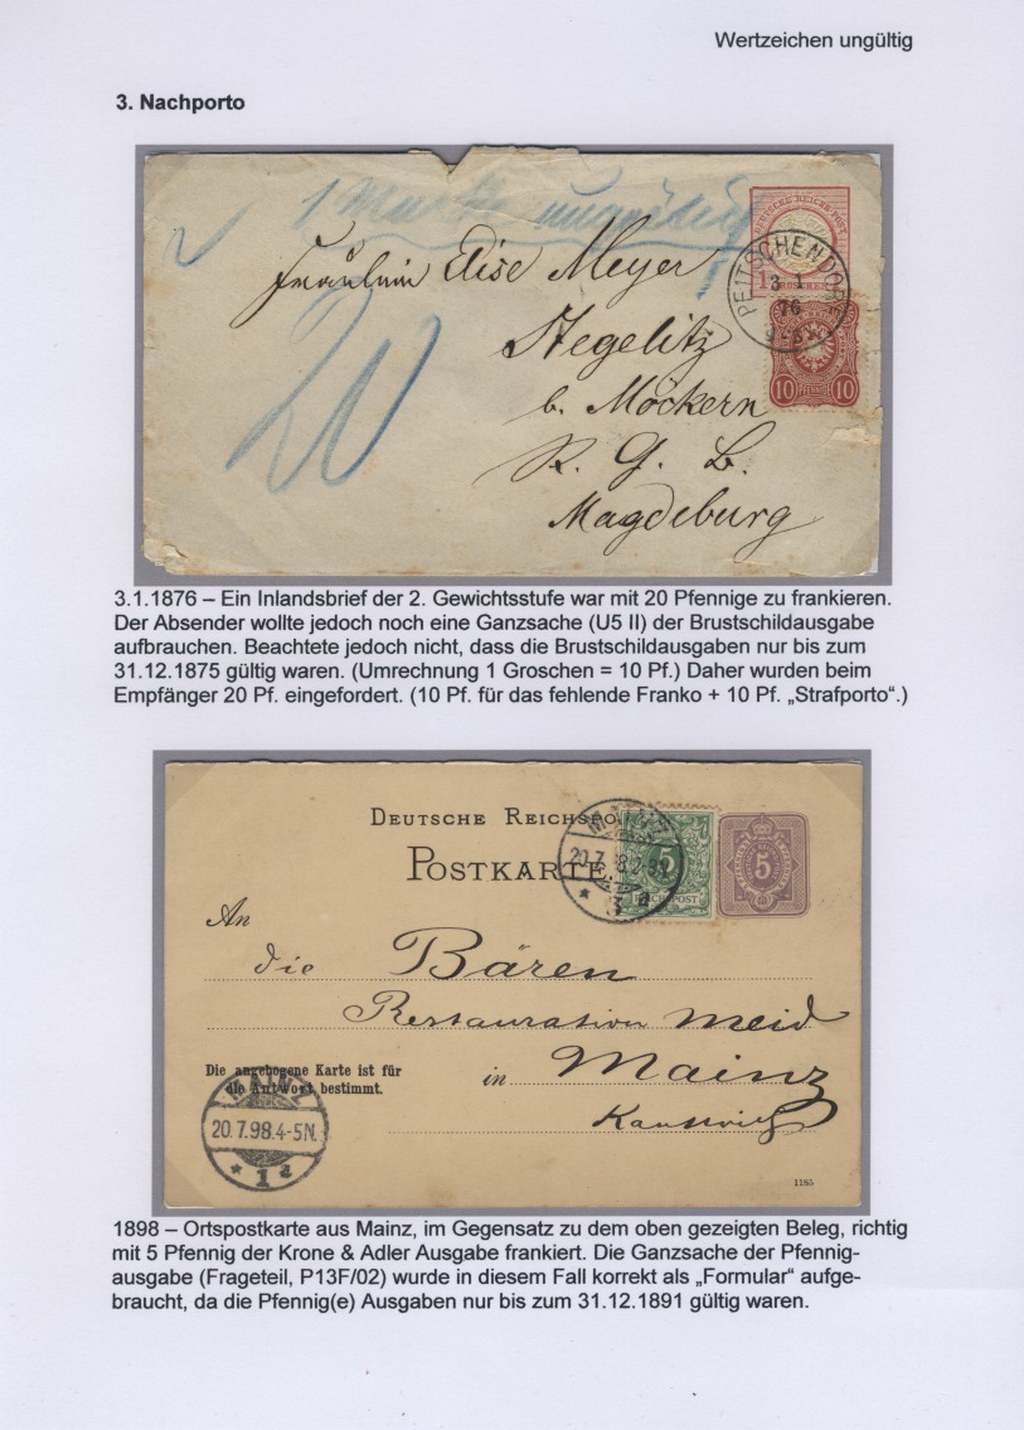 Wertzeichen ungültig
3. Nachporto
1 Marke ungültig
DEUTSCHE REICHS-POST
1 GROSCHEN
PEITSCHENDORF
3 1
76
10 PFENNIGE 10
Fräulein Elise Meyer
Stegelitz
b. Möckern
R. G. B.
Magdeburg
20
3.1.1876 – Ein Inlandsbrief der 2. Gewichtsstufe war mit 20 Pfennige zu frankieren.
Der Absender wollte jedoch noch eine Ganzsache (U5 II) der Brustschildausgabe
aufbrauchen. Beachtete jedoch nicht, dass die Brustschildausgaben nur bis zum
31.12.1875 gültig waren. (Umrechnung 1 Groschen = 10 Pf.) Daher wurden beim
Empfänger 20 Pf. eingefordert. (10 Pf. für das fehlende Franko + 10 Pf. „Strafporto“.)
DEUTSCHE REICHSPO
POSTKARTE.
MAINZ
5
REICHSPOST
5
An
die Bären
Restauration Meid
in Mainz
Die angebogene Karte ist für
die Antwort bestimmt.
MAINZ
20.7.98.4-5N.
* 1 a
1185
1898 – Ortspostkarte aus Mainz, im Gegensatz zu dem oben gezeigten Beleg, richtig
mit 5 Pfennig der Krone & Adler Ausgabe frankiert. Die Ganzsache der Pfennig-
ausgabe (Frageteil, P13F/02) wurde in diesem Fall korrekt als „Formular“ aufge-
braucht, da die Pfennig(e) Ausgaben nur bis zum 31.12.1891 gültig waren.